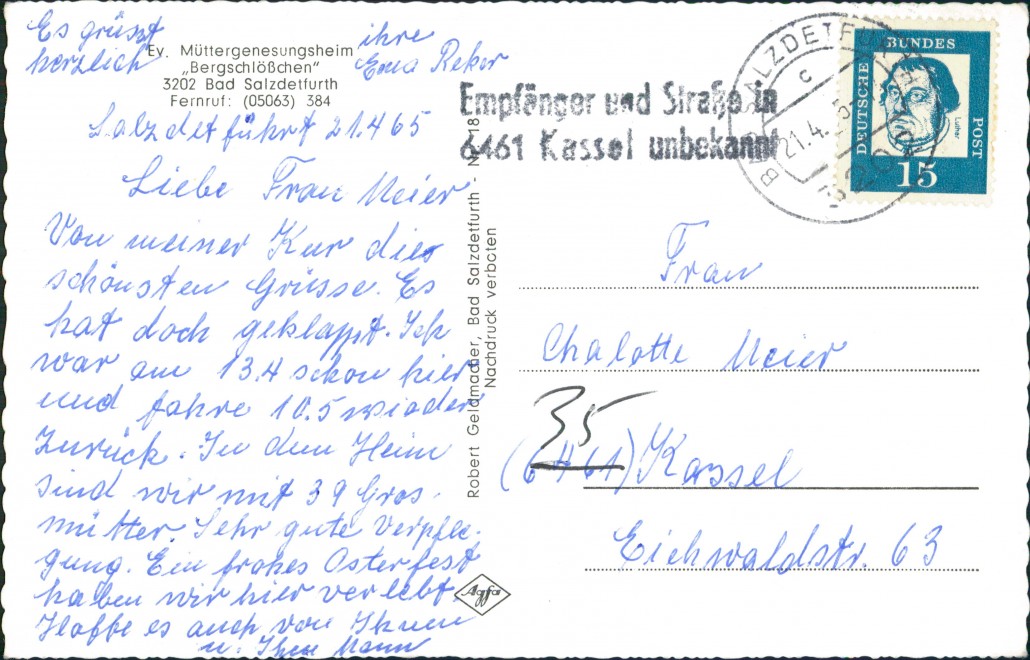 Es grüsst
herzlich
ihre
Erna Rekor
Ev. Müttergenesungsheim
„Bergschlößchen"
3202 Bad Salzdetfurth
Fernruf: (05063) 384
Salzdetführt 21.4 65
Liebe Frau Meier
Von meiner Kur die
schönsten Grüsse. Es
hat doch geklappt. Ich
war am 13.4 schon hier
und fahre 10.5 wieder
Zurück. In dem Heim
sind wir mit 39 Gros-
mütter. Sehr gute Verpfle-
gung. Ein frohes Osterfest
haben wir hier verlebt.
Hoffe es auch von Ihnen
u. Ihren Mann
Robert Geldmacher, Bad Salzdetfurth - Nr. 18
Nachdruck verboten
Agfa
Empfänger und Straße in
6461 Kassel unbekannt
21.4.65
c
DEUTSCHE
BUNDES
POST
Luther
15
Frau
Chalotte Meier
35
(6461) Kassel
Eichwaldstr. 63